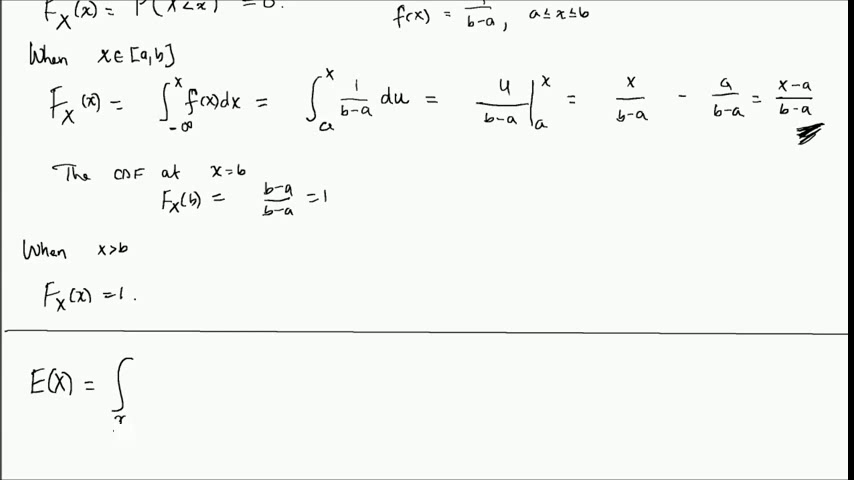 F_X(x) = P(X<x) = 0. f(x) = 1/(b-a), a≤x≤b
When x∈[a,b]
F_X(x) = ∫_{-∞}^{x} f(x)dx = ∫_a^x 1/(b-a) du = u/(b-a) |_a^x = x/(b-a) - a/(b-a) = (x-a)/(b-a)
The CDF at x=b
F_X(b) = (b-a)/(b-a) = 1
When x>b
F_X(x) = 1.
E(X) = ∫_x